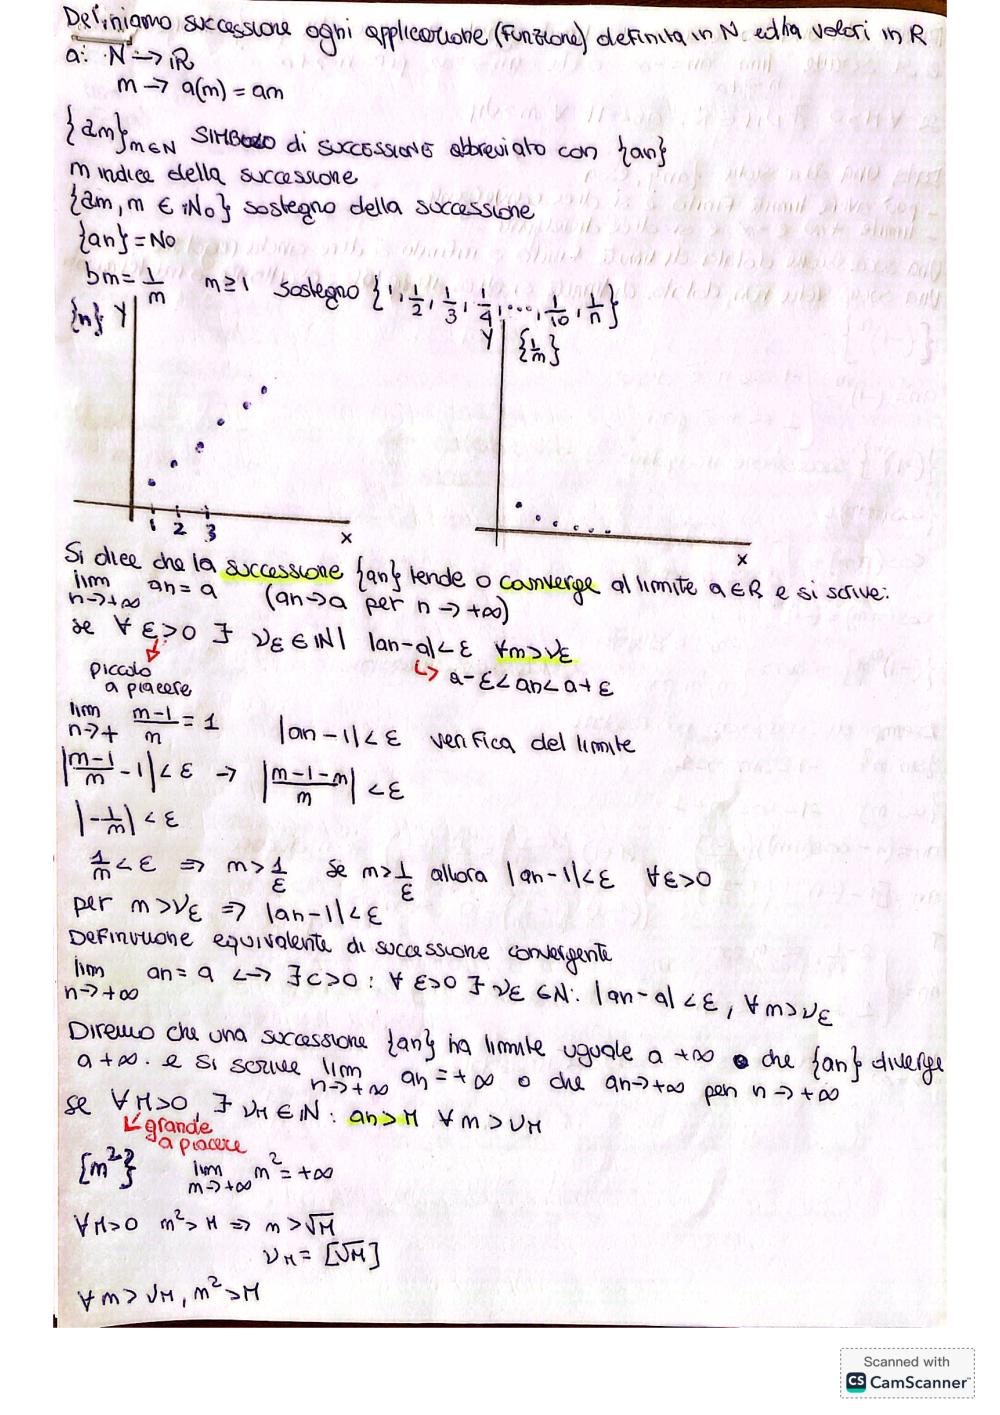 Definiamo successione ogni applicazione (funzione) definita in N ed ha valori in R
a: N → R
m → a(m) = am
{am}m∈N SIMBOLO di SUCCESSIONE abbreviato con {an}
m indice della successione
{am, m ∈ No} sostegno della successione
{an} = No
bm = 1/m m≥1 sostegno {1, 1/2, 1/3, 1/4, ..., 1/10, 1/n}
{n} Y
Y {1/m}
1 2 3
x
x
Si dice che la successione {an} tende o converge al limite a∈R e si scrive:
lim n→+∞ an = a (an→a per n→+∞)
se ∀ ε>0 ∃ νε ∈ N | |an-a|<ε ∀m>νε
piccolo a piacere
↳ a-ε<an<a+ε
lim n→+ m-1/m = 1 |an-1|<ε verifica del limite
|m-1/m - 1|<ε → |m-1-m/m| <ε
|-1/m| <ε
1/m<ε ⇒ m>1/ε se m>1/ε allora |an-1|<ε ∀ε>0
per m>νε ⇒ |an-1|<ε
Definizione equivalente di successione convergente
lim n→+∞ an = a ↔ ∃c>0 : ∀ ε>0 ∃ νε ∈N: |an-a|<ε, ∀m>νε
Diremo che una successione {an} ha limite uguale a +∞ o che {an} diverge
a +∞. e si scrive lim n→+∞ an = +∞ o che an→+∞ per n→+∞
se ∀M>0, ∃ νM ∈ N : an>M ∀m>νM
grande a piacere
{m²} lim m→+∞ m² = +∞
∀M>0 m²>M ⇒ m>√M
νM = [√M]
∀m>νM, m²>M
Scanned with
CS CamScanner